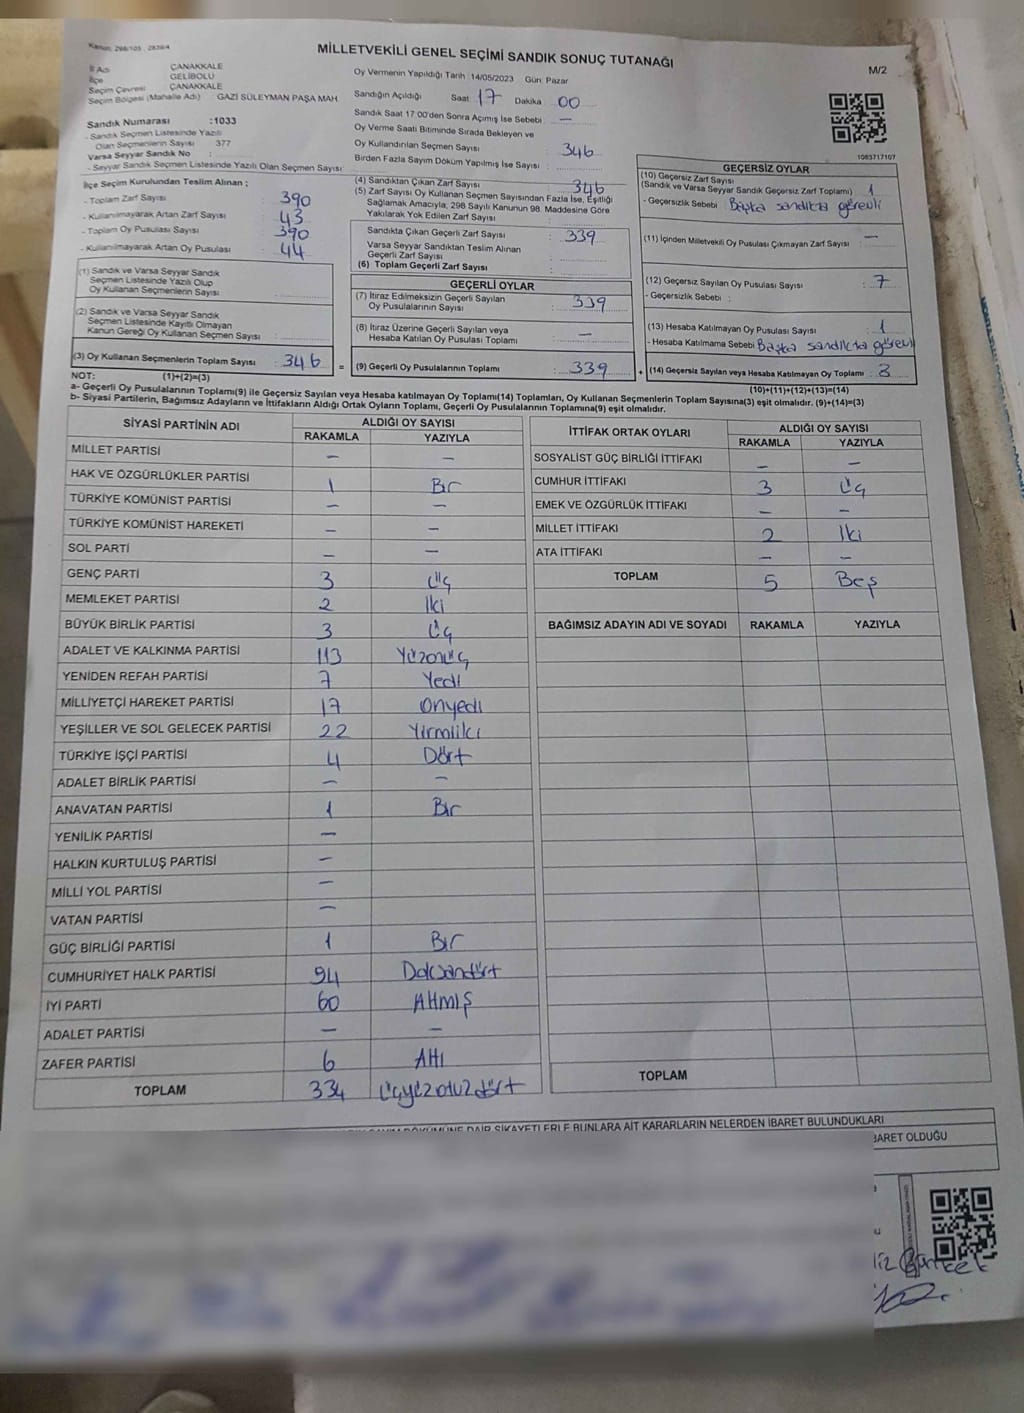 Kanun: 298/105 , 2839/4
MİLLETVEKİLİ GENEL SEÇİMİ SANDIK SONUÇ TUTANAĞI
M/2
İl Adı ÇANAKKALE
İlçe GELİBOLU
Seçim Çevresi ÇANAKKALE
Seçim Bölgesi (Mahalle Adı) GAZİ SÜLEYMAN PAŞA MAH
Sandık Numarası :1033
- Sandık Seçmen Listesinde Yazılı
Olan Seçmenlerin Sayısı 377
Varsa Seyyar Sandık No :
- Seyyar Sandık Seçmen Listesinde Yazılı Olan Seçmen Sayısı:
Oy Vermenin Yapıldığı Tarih :14/05/2023 Gün: Pazar
Sandığın Açıldığı Saat 17 Dakika 00
Sandık Saat 17.00'den Sonra Açımış İse Sebebi : —
Oy Verme Saati Bitiminde Sırada Bekleyen ve
Oy Kullandırılan Seçmen Sayısı : 346
Birden Fazla Sayım Döküm Yapılmış İse Sayısı :
1083717107
İlçe Seçim Kurulundan Teslim Alınan ;
- Toplam Zarf Sayısı : 390
- Kullanılmayarak Artan Zarf Sayısı : 43
- Toplam Oy Pusulası Sayısı : 390
- Kullanılmayarak Artan Oy Pusulası : 44
(1) Sandık ve Varsa Seyyar Sandık
Seçmen Listesinde Yazılı Olup
Oy Kullanan Seçmenlerin Sayısı :
(2) Sandık ve Varsa Seyyar Sandık
Seçmen Listesinde Kayıtlı Olmayan
Kanun Gereği Oy Kullanan Seçmen Sayısı :
(3) Oy Kullanan Seçmenlerin Toplam Sayısı : 346
(4) Sandıktan Çıkan Zarf Sayısı : 346
(5) Zarf Sayısı Oy Kullanan Seçmen Sayısından Fazla İse, Eşitliği
Sağlamak Amacıyla; 298 Sayılı Kanunun 98. Maddesine Göre
Yakılarak Yok Edilen Zarf Sayısı :
Sandıkta Çıkan Geçerli Zarf Sayısı : 339
Varsa Seyyar Sandıktan Teslim Alınan
Geçerli Zarf Sayısı :
(6) Toplam Geçerli Zarf Sayısı :
GEÇERLİ OYLAR
(7) İtiraz Edilmeksizin Geçerli Sayılan
Oy Pusulalarının Sayısı : 339
(8) İtiraz Üzerine Geçerli Sayılan veya
Hesaba Katılan Oy Pusulası Toplamı : —
= (9) Geçerli Oy Pusulalarının Toplamı : 339
GEÇERSİZ OYLAR
(10) Geçersiz Zarf Sayısı
(Sandık ve Varsa Seyyar Sandık Geçersiz Zarf Toplamı) : 1
- Geçersizlik Sebebi : Başka sandıkta görevli
(11) İçinden Milletvekili Oy Pusulası Çıkmayan Zarf Sayısı : —
(12) Geçersiz Sayılan Oy Pusulası Sayısı : 7
- Geçersizlik Sebebi :
(13) Hesaba Katılmayan Oy Pusulası Sayısı : 1
- Hesaba Katılmama Sebebi : Başka sandıkta görevli
+ (14) Geçersiz Sayılan veya Hesaba Katılmayan Oy Toplamı : 8
NOT: (1)+(2)=(3)
(10)+(11)+(12)+(13)=(14)
a- Geçerli Oy Pusulalarının Toplamı(9) ile Geçersiz Sayılan veya Hesaba katılmayan Oy Toplamı(14) Toplamları, Oy Kullanan Seçmenlerin Toplam Sayısına(3) eşit olmalıdır. (9)+(14)=(3)
b- Siyasi Partilerin, Bağımsız Adayların ve İttifakların Aldığı Ortak Oyların Toplamı, Geçerli Oy Pusulalarının Toplamına(9) eşit olmalıdır.
SİYASİ PARTİNİN ADI ALDIĞI OY SAYISI
RAKAMLA YAZIYLA
MİLLET PARTİSİ — —
HAK VE ÖZGÜRLÜKLER PARTİSİ 1 Bir
TÜRKİYE KOMÜNİST PARTİSİ — —
TÜRKİYE KOMÜNİST HAREKETİ — —
SOL PARTİ — —
GENÇ PARTİ 3 Üç
MEMLEKET PARTİSİ 2 İki
BÜYÜK BİRLİK PARTİSİ 3 Üç
ADALET VE KALKINMA PARTİSİ 113 Yüzonüç
YENİDEN REFAH PARTİSİ 7 Yedi
MİLLİYETÇİ HAREKET PARTİSİ 17 Onyedi
YEŞİLLER VE SOL GELECEK PARTİSİ 22 Yirmiiki
TÜRKİYE İŞÇİ PARTİSİ 4 Dört
ADALET BİRLİK PARTİSİ — —
ANAVATAN PARTİSİ 1 Bir
YENİLİK PARTİSİ —
HALKIN KURTULUŞ PARTİSİ —
MİLLİ YOL PARTİSİ —
VATAN PARTİSİ —
GÜÇ BİRLİĞİ PARTİSİ 1 Bir
CUMHURİYET HALK PARTİSİ 94 Doksandört
İYİ PARTİ 60 Altmış
ADALET PARTİSİ — —
ZAFER PARTİSİ 6 Altı
TOPLAM 334 Üçyüzotuzdört
İTTİFAK ORTAK OYLARI ALDIĞI OY SAYISI
RAKAMLA YAZIYLA
SOSYALİST GÜÇ BİRLİĞİ İTTİFAKI — —
CUMHUR İTTİFAKI 3 Üç
EMEK VE ÖZGÜRLÜK İTTİFAKI — —
MİLLET İTTİFAKI 2 İki
ATA İTTİFAKI — —
TOPLAM 5 Beş
BAĞIMSIZ ADAYIN ADI VE SOYADI RAKAMLA YAZIYLA
TOPLAM
SAYIM DÖKÜMÜNE DAİR ŞİKAYETLERLE BUNLARA AİT KARARLARIN NELERDEN İBARET BULUNDUKLARI
BARET OLDUĞU